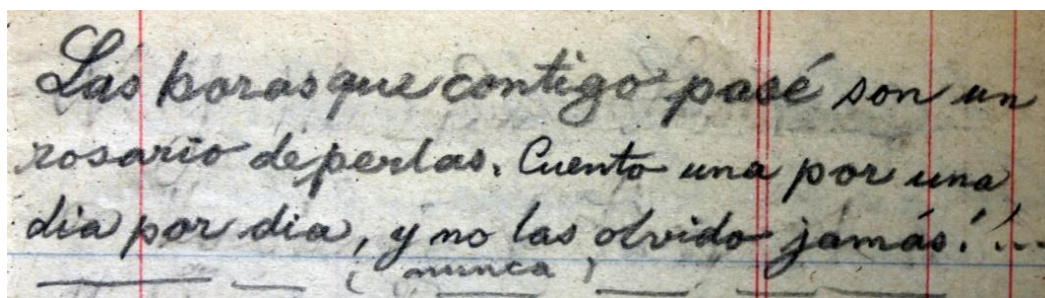 Las horas que contigo pasé son un
rosario de perlas. Cuento una por una
dia por dia, y no las olvido jamás!...
(nunca)